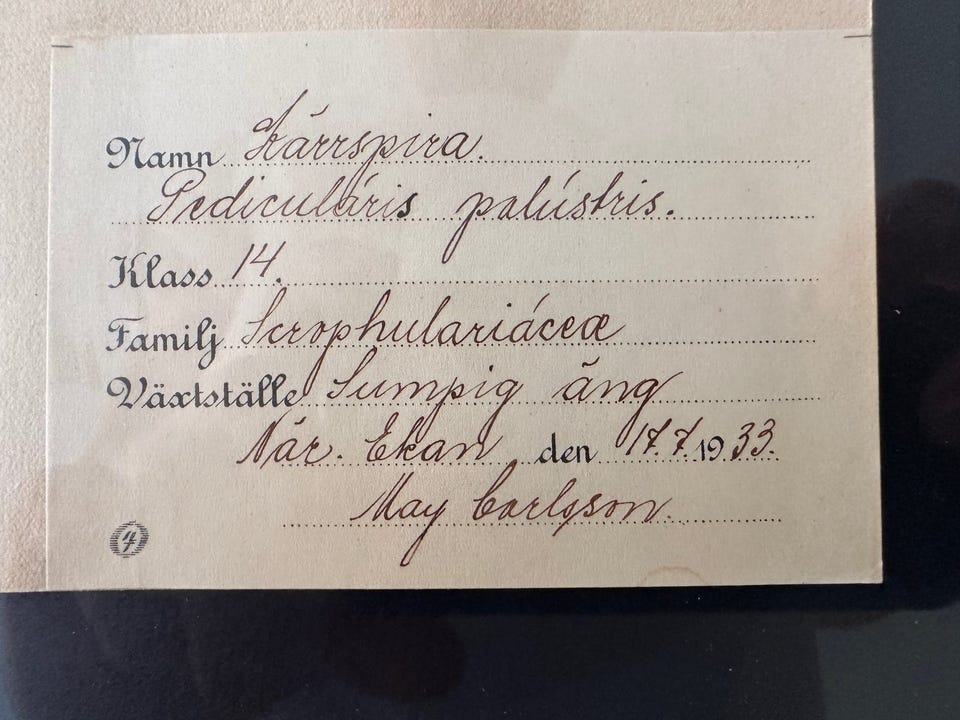 Namn Kärrspira.
Pediculáris palústris.
Klass 14.
Familj Scrophulariáceæ
Växtställe Sumpig äng
När. Ekan den 17.7.1933.
May Carlsson.
4